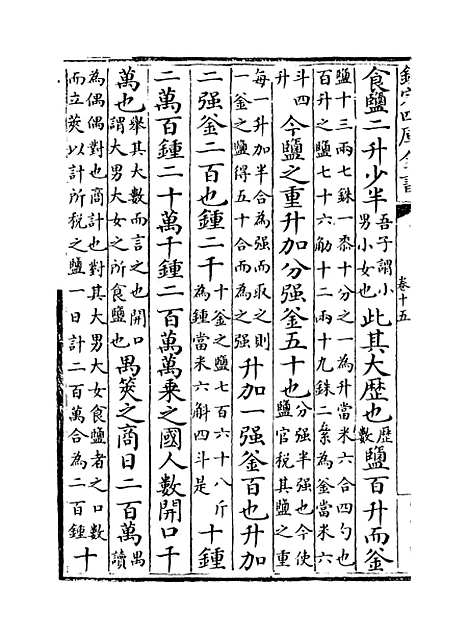 欽定四庫全書
卷十五
食鹽二升少半吾子謂小男小女也此其大歴也歴數鹽百升而釜
鹽十三兩七銖一黍十分之一為升當米六合四勺也
百升之鹽七十六觔十二兩十九銖二絫為釜當米六
斗四升今鹽之重升加分强釜五十也分强半强也今使鹽官税其鹽之重
每一升加半合為强而取之則一釜之鹽得五十合而為之强升加一强釜百也升加
二强釜二百也鍾二千十釜之鹽七百六十八斤為鍾當米六斛四斗是十鍾
二萬百鍾二十萬千鍾二百萬萬乗之國人數開口千
萬也舉其大數而言之也開口謂大男大女之所食鹽也禺筴之商日二百萬禺讀
為偶偶對也商計也對其大男大女食鹽者之口數
而立筴以計所税之鹽一日計二百萬合為二百鍾十